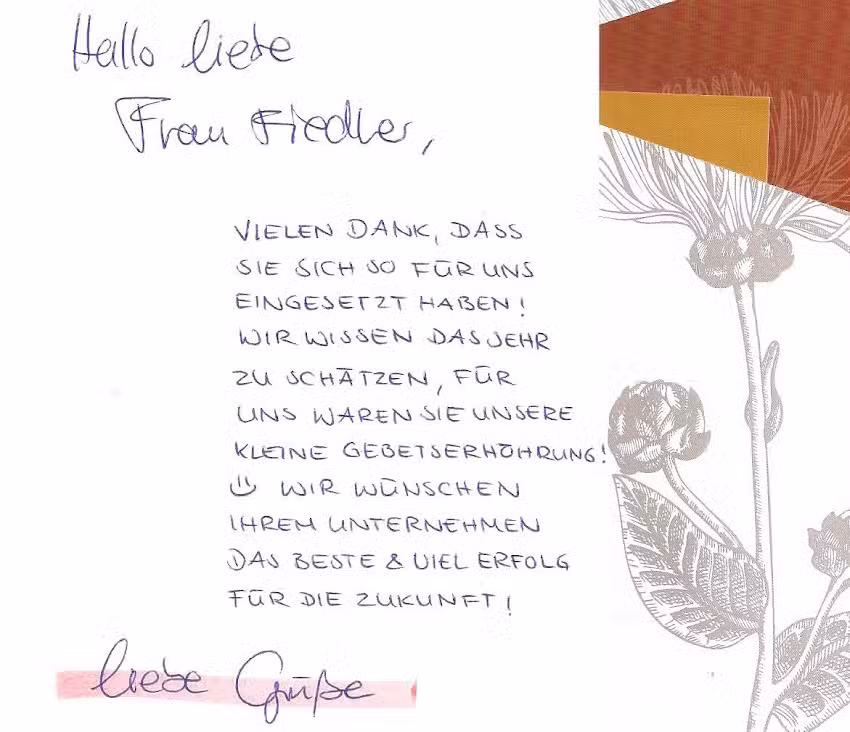 Hallo liebe
Frau Fiedler,
VIELEN DANK, DASS
SIE SICH SO FÜR UNS
EINGESETZT HABEN!
WIR WISSEN DAS SEHR
ZU SCHÄTZEN, FÜR
UNS WAREN SIE UNSERE
KLEINE GEBETSERHÖHRUNG!
☺ WIR WÜNSCHEN
IHREM UNTERNEHMEN
DAS BESTE & VIEL ERFOLG
FÜR DIE ZUKUNFT!
liebe Grüße